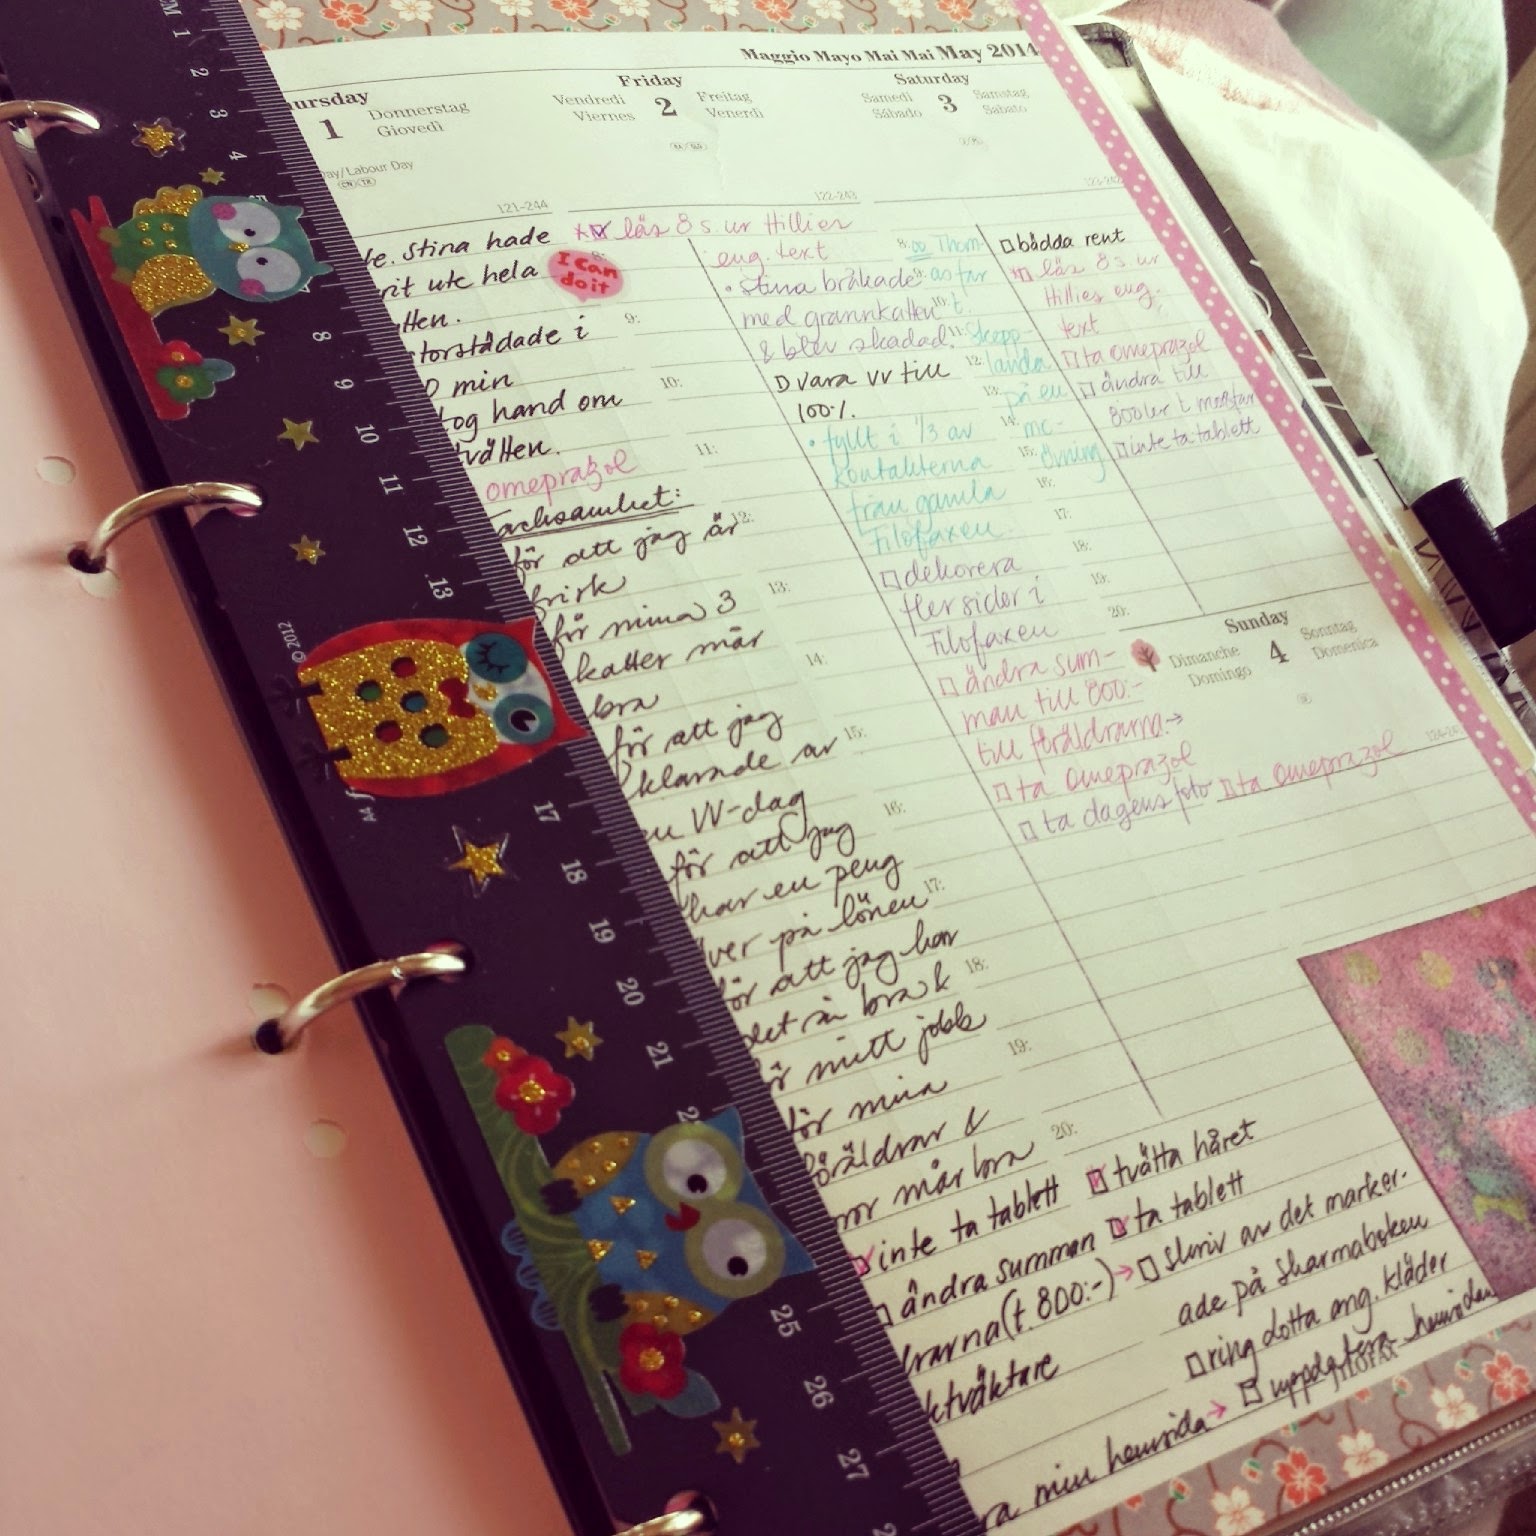 Maggio Mayo Mai Mai May 2014
ursday
1
Donnerstag
Giovedì
ay/Labour Day
121-244
Friday
Vendredi
Viernes
2
Freitag
Venerdì
122-243
Saturday
Samedi
Sábado
3
Samstag
Sabato
123-242
te. Stina hade
rit ute hela
tten.
torstädade i
0 min
tog hand om
tvätten.
omeprazol
acksamhet:
för att jag är
frisk
för mina 3
katter mår
bra
för att jag
klarade av
en VV-dag
för att jag
har en peng
ver på lönen
för att jag har
det så bra &
ör mitt jobb
för mina
föräldrar &
mår bra
inte ta tablett
ändra summan
rarna (t. 800:-) →
ktväktare
ra min hemsida →
I can
do it
läs 8 s ur Hillier
eng. text
• Stina bråkade
med grannkatten
& blev skadad.
vara vv till
100%.
• fyllt i 1/3 av
kontakterna
från gamla
Filofaxen.
dekorera
fler sidor i
Filofaxen
ändra sum-
man till 800:-
till föräldrarna →
ta omeprazol
ta dagens foto
8:00 Thom-
as far
t.
Skepp-
landa
på en
mc-
övning
9:
10:
11:
12:
13:
14:
15:
16:
17:
18:
19:
20:
bädda rent
läs 8 s ur
Hillier eng.
text
ta omeprazol
ändra till
inte ta tablett
Sunday
Dimanche
Domingo
4
Sonntag
Domenica
ta omeprazol
9:
10:
11:
12:
13:
14:
15:
16:
17:
18:
19:
20:
tvätta håret
ta tablett
skriv av det marker-
ade på skarmaboken
ring dotta ang. kläder
uppdatera hemsidan
1
2
3
4
8
9
10
11
12
13
17
18
19
20
21
25
26
27
© 2012
A4